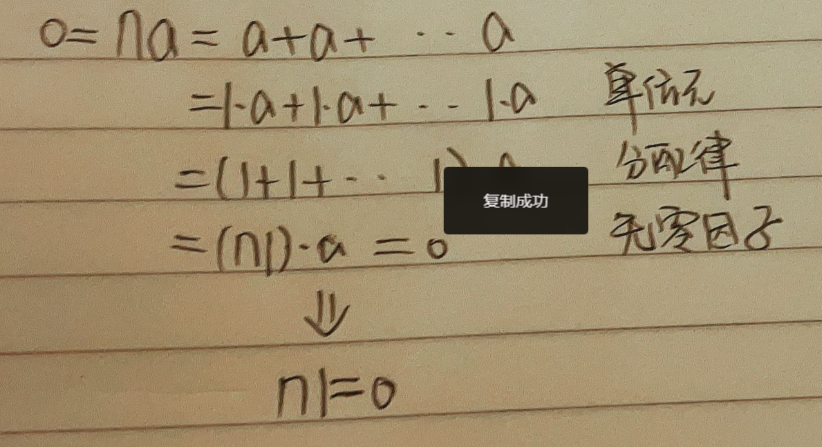 0=na=a+a+ ‥ a
=1·a+1·a+ ‥ 1·a 单位元
=(1+1+ ‥ 1) 分配律
复制成功
=(n1)·a=0 无零因子
⇓
n1=0